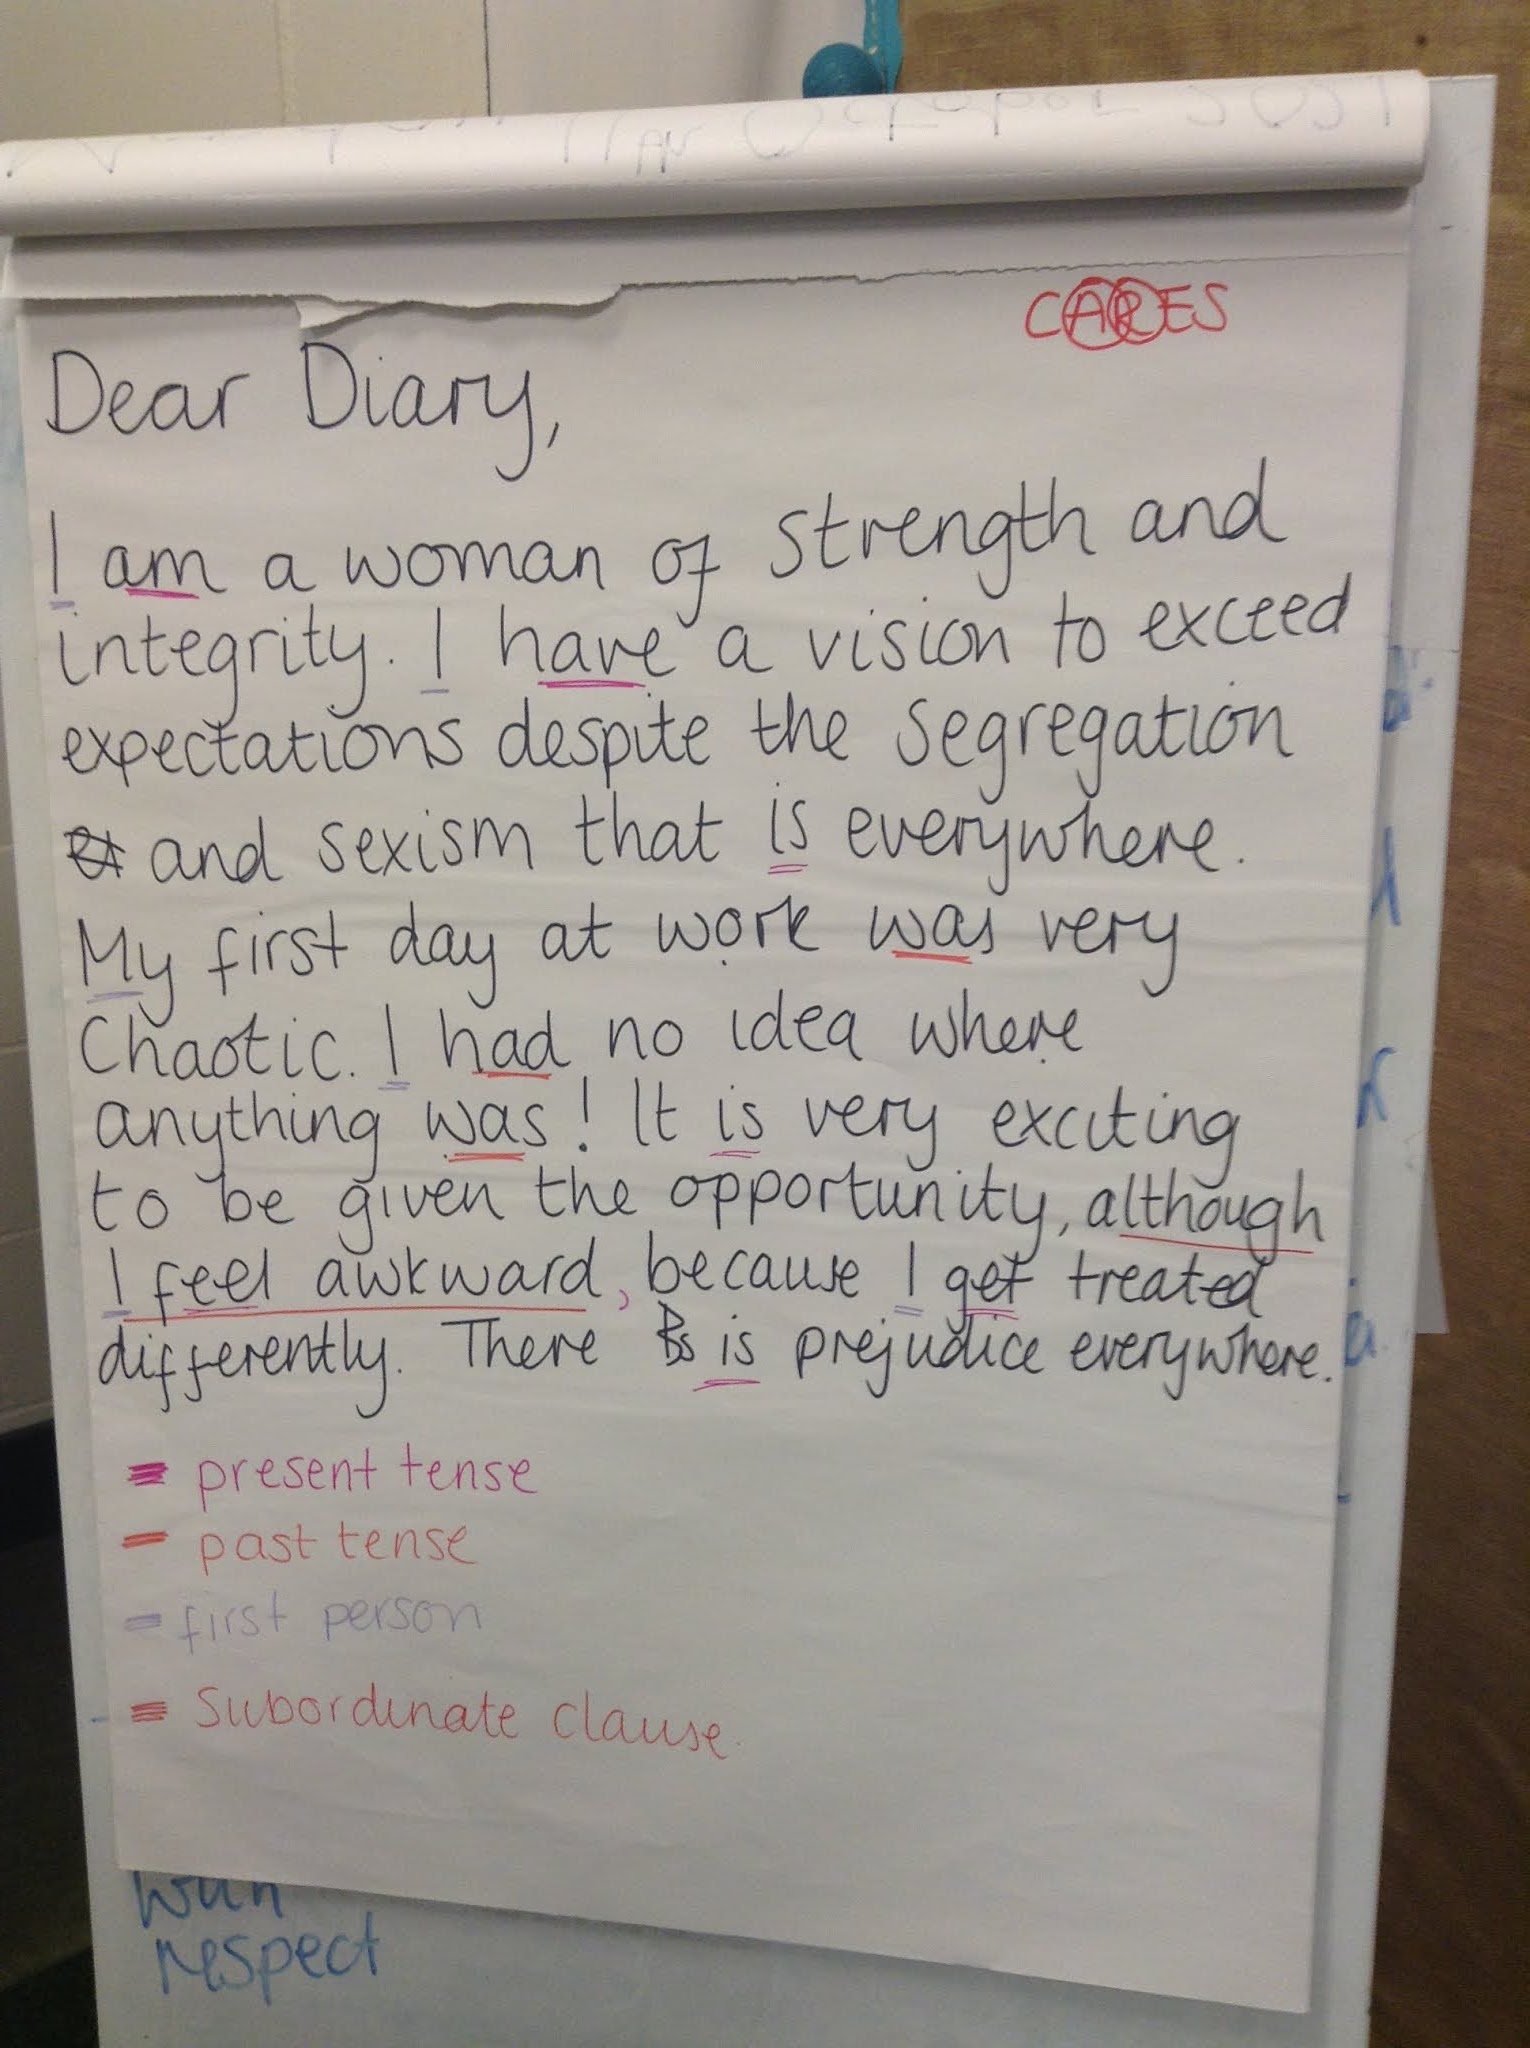 11th October 2021
CARES
Dear Diary,
I am a woman of strength and
integrity. I have a vision to exceed
expectations despite the segregation
and sexism that is everywhere.
My first day at work was very
Chaotic. I had no idea where
anything was! It is very exciting
to be given the opportunity, although
I feel awkward, because I get treated
differently. There is prejudice everywhere.
present tense
past tense
first person
Subordinate clause.
with
respect